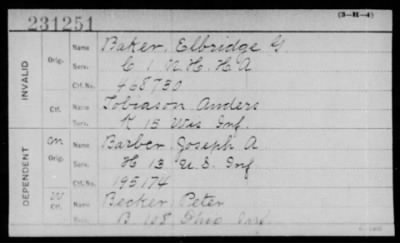 231251
(3-H-4)
INVALID
Orig.
Name Baker, Elbridge G.
Serv. C 1 N.H. H A
Ctf. No. 468730
Ctf.
Name Tobiason Anders
Serv. K 15 Wis Inf.
DEPENDENT
Orig.
Name Barber, Joseph A
Serv. H 13 U.S. Inf
Ctf. No. 195174
Ctf.
Name Becker, Peter
Serv. B 108 Ohio Inf